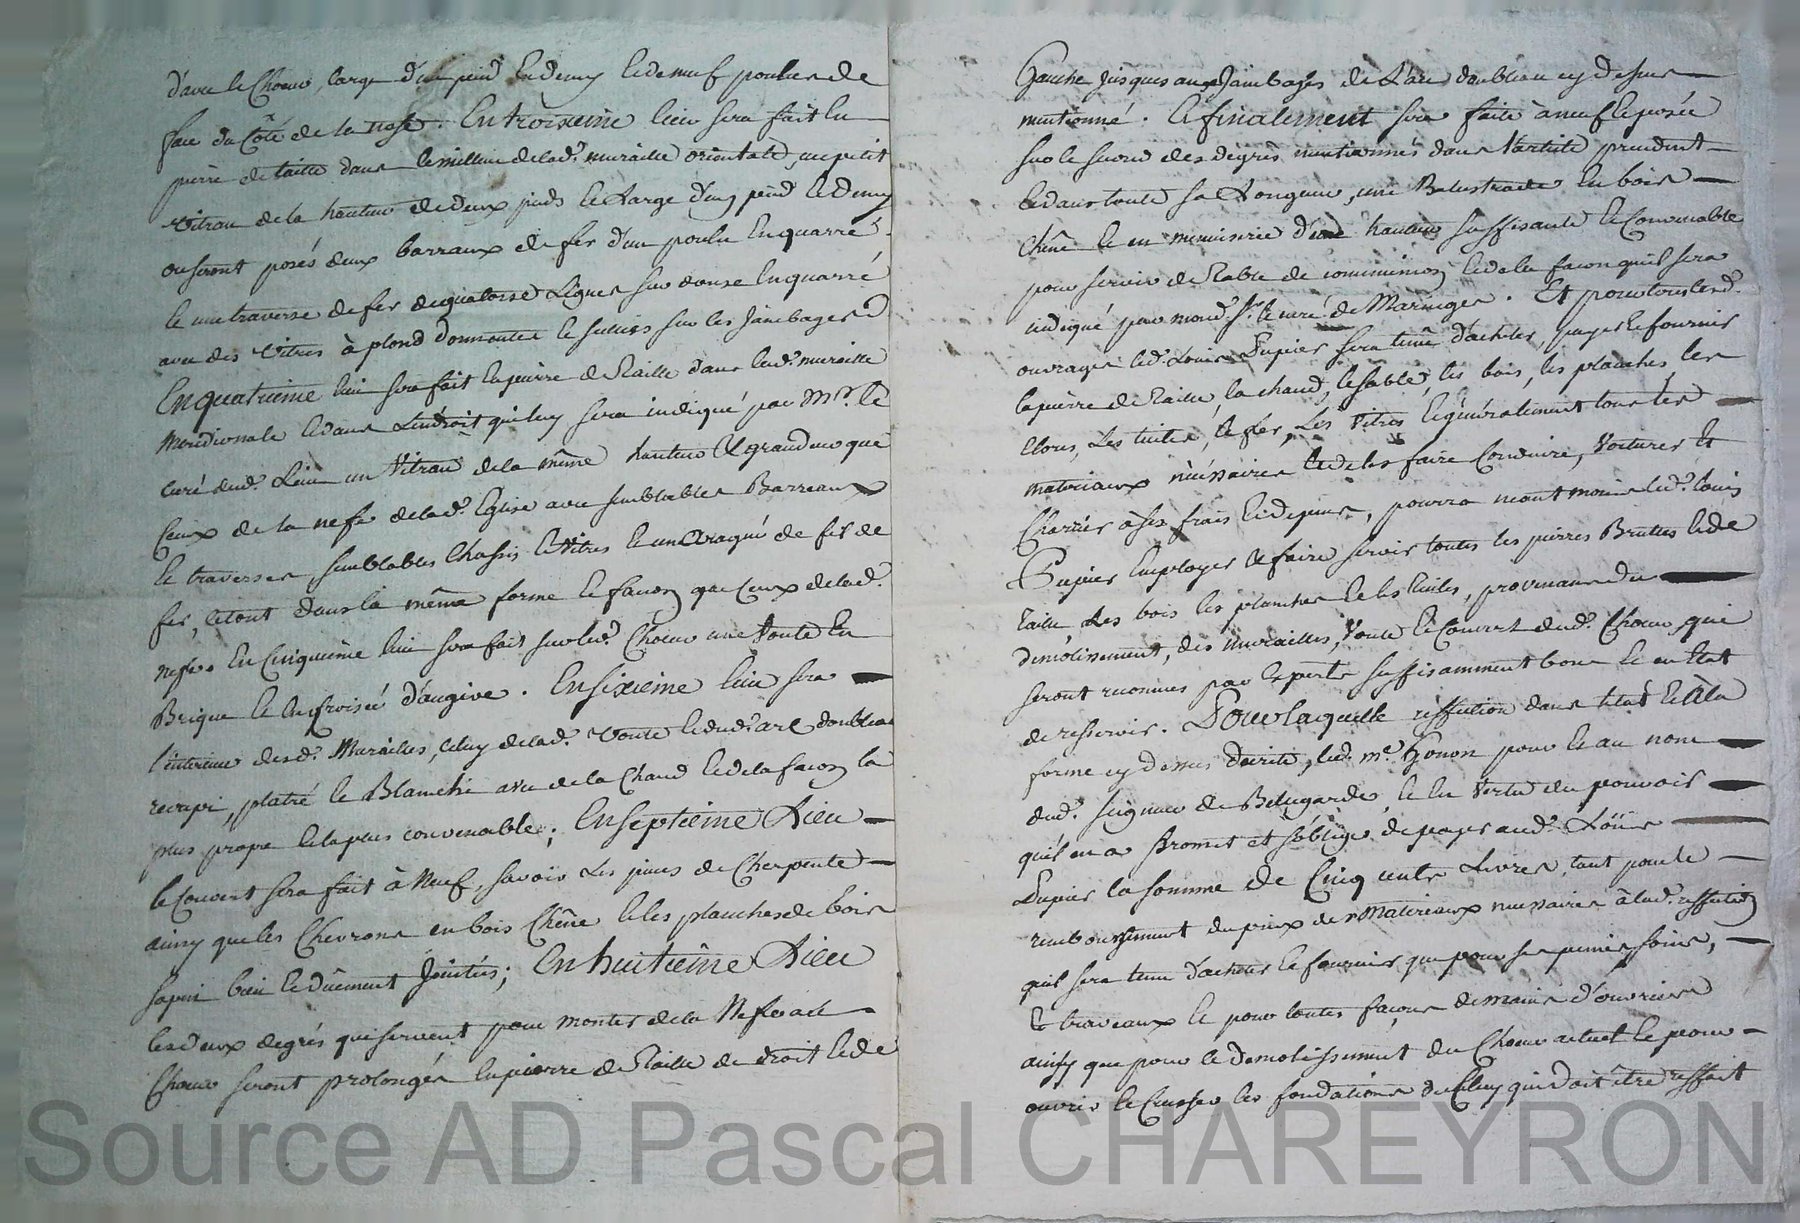 d'avec le Chœur, large d'un pied & demy & de neuf pouces de
face du Côté de la nefe. En troisieme lieu sera fait en
pierre de taille dans le millieu de lad.e muraille orientale, un petit
vitrau de la hauteur de deux pieds & large d'un pied & demy
ou seront posés deux barraux de fer d'un pouce en quarré
& une traverse de fer de quatorse Lignes sur douse en quarré
avec des vitres à plond
En quatrieme lieu sera fait en pierre de Taille dans lad.e muraille
Meridionale & dans L'endroit qui luy sera indiqué par Mr. le
curé dud. Lieu un Vitrau de la même hauteur & grandeur que
Ceux de la nefe de lad.e Eglise avec semblables Barreaux
& traverses, semblables Chassis & vitres & un de fil de
fer, le tout dans la même forme & façon que Ceux de lad.e
nefe. En Cinquieme lieu sera fait sur led. Chœur une Voute en
Brique & en Croisée d'augive. En sixieme lieu sera
l'interieur desd. Murailles, celuy de lad.e Voute & dud. arc doubleau
recrepi, platré & Blanchi avec de la Chaud & de la façon la
plus propre & la plus convenable; En septieme Lieu
le Couvert sera fait à Neuf, savoir Les pieces de Cherpente
ainsy que les Chevrons en bois Chêne & les planches de bois
sapin bien & dûement Jointés; En huitieme Lieu
les deux degrés qui servent pour monter de la Nefe aud.
Chœur seront prolongés en pierre de Taille de droit & de
Gauche jusques aux Jambages de L'arc doubleau cy dessus
mentionné. & finalement sera faite à neuf & posée
sur le second des degrés mentionnés dans l'article precedent
& dans toute sa Longueur, une Balustrade en bois
Chêne & en menuiserie d'une hauteur suffisante & Convenable
pour servir de Table de communion & de la façon qu'il sera
indiqué par mond. Sr. le curé de Maringes. Et pour tous lesd.
ouvrages led. Louis Dupier sera tenu d'acheter, payer & fournir
la pierre de Taille, la chaud, le sable, les bois, les planches, les
Clous, Les tuiles, le fer, Les Vitres & généralement tous les
materiaux nécessaires & de les faire Conduire, Voiturer et
Charrier à ses frais & depens, pourra neantmoins led. Louis
Dupier employer & faire servir toutes les pierres Bruttes & de
taille, Les bois les planches & les tuiles, provenans du
demolissement, des murailles, Voute & Couvert dud. Chœur, qui
seront reconnus par experts suffisamment bons & en Etat
de resservir. Pour laquelle reffection dans l'état & à la
forme cy dessus décrite, led. me. Gonon pour & au nom
dud. Seigneur de Bellegarde, & en Vertu du pouvoir
qu'il en a Promet et s'oblige de payer aud. Loüis
Dupier la somme de Cinq cents Livres, tant pour le
remboursement du prix des Matereaux necessaires à lad. reffection
qu'il sera tenu d'acheter & fournir, que pour ses peines, soins,
& traveaux & pour toutes façons de mains d'ouvriers
ainsy que pour le demolissement du Chœur actuel & pour
ouvrir & Creuser les fondations de celuy qui doit être reffait
Source AD Pascal CHAREYRON